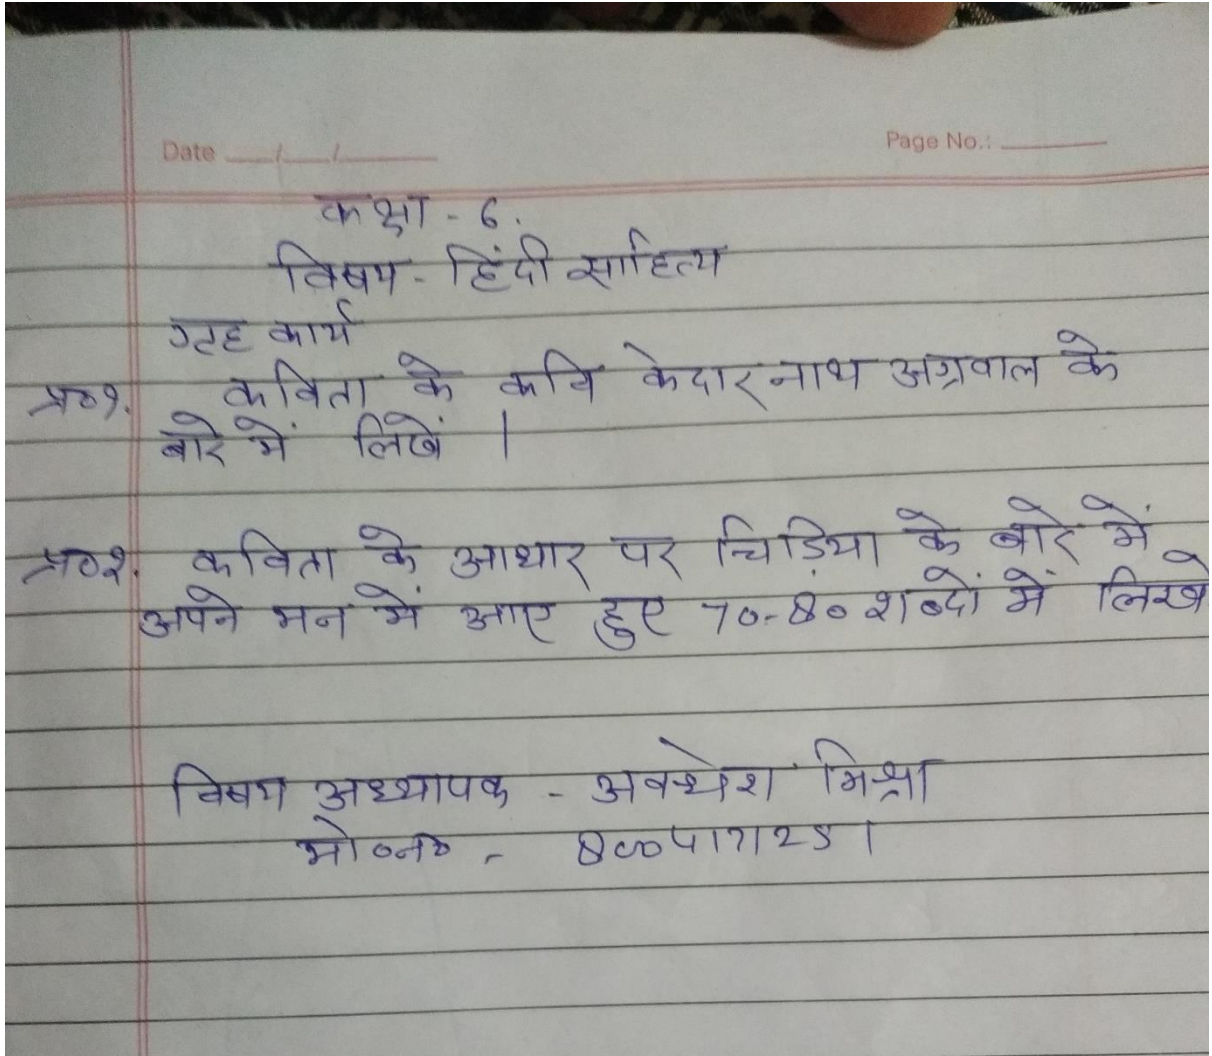 Date __/__/____
Page No.: ____
कक्षा - 6.
विषय - हिंदी साहित्य
गृह कार्य
प्र०१. कविता के कवि केदारनाथ अग्रवाल के
बारे में लिखें |
प्र०२. कविता के आधार पर चिड़िया के बारे में
अपने मन में आए हुए 70-80 शब्दों में लिखे
विषय अध्यापक - अवधेश मिश्रा
मो०न० - 8005417125 |